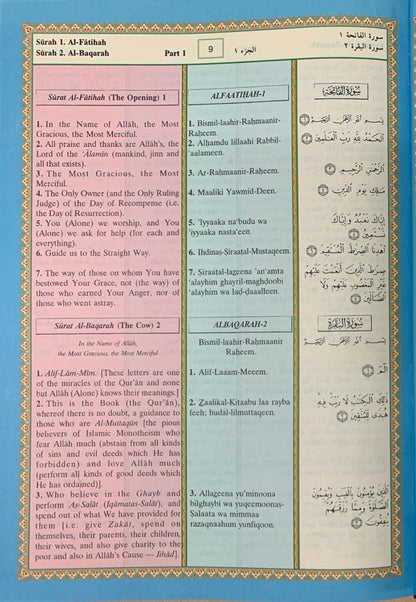 Sûrah 1. Al-Fâtihah
Sûrah 2. Al-Baqarah
Part 1
9
الجزء ١
سورة الفاتحة ١
سورة البقرة ٢
Sûrat Al-Fâtihah (The Opening) 1
1. In the Name of Allâh, the Most
Gracious, the Most Merciful.
2. All praise and thanks are Allâh's, the
Lord of the 'Âlamîn (mankind, jinn and
all that exists).
3. The Most Gracious, the Most
Merciful.
4. The Only Owner (and the Only Ruling
Judge) of the Day of Recompense (i.e.
the Day of Resurrection).
5. You (Alone) we worship, and You
(Alone) we ask for help (for each and
everything).
6. Guide us to the Straight Way.
7. The way of those on whom You have
bestowed Your Grace, not (the way) of
those who earned Your Anger, nor of
those who went astray.
Sûrat Al-Baqarah (The Cow) 2
In the Name of Allâh,
the Most Gracious, the Most Merciful
1. Alif-Lâm-Mîm. [These letters are one
of the miracles of the Qur'ân and none
but Allâh (Alone) knows their meanings.]
2. This is the Book (the Qur'ân),
whereof there is no doubt, a guidance to
those who are Al-Muttaqûn [the pious
believers of Islamic Monotheism who
fear Allâh much (abstain from all kinds
of sins and evil deeds which He has
forbidden) and love Allâh much
(perform all kinds of good deeds which
He has ordained)].
3. Who believe in the Ghayb and
perform As-Salât (Iqamatas-Salât), and
spend out of what We have provided for
them [i.e. give Zakât, spend on
themselves, their parents, their children,
their wives, and also give charity to the
poor and also in Allâh's Cause — Jihâd].
ALFAATIḤAH-1
1. Bismil-laahir-Raḥmaanir-
Raḥeem.
2. Alḥamdu lillaahi Rabbil-
'aalameen.
3. Ar-Raḥmaanir-Raḥeem.
4. Maaliki Yawmid-Deen.
5. 'Iyyaaka na'budu wa
'iyyaaka nasta'een.
6. Ihdinaṣ-Ṣiraaṭal-Mustaqeem.
7. Ṣiraaṭal-laẓeena 'an'amta
'alayhim ghayril-maghḍoobi
'alayhim wa laḍ-ḍaaalleen.
ALBAQARAH-2
Bismil-laahir-Raḥmaanir
Raḥeem.
1. Alif-Laaam-Meeem.
2. Ẓaalikal-Kitaabu laa rayba
feeh; hudal-lilmuttaqeen.
3. Allaẓeena yu'minoona
bilghaybi wa yuqeemoonaṣ-
Ṣalaata wa mimmaa
razaqnaahum yunfiqoon.
سُورَةُ الفَاتِحَةِ
بِسْمِ ٱللَّهِ ٱلرَّحْمَٰنِ ٱلرَّحِيمِ ١
ٱلْحَمْدُ لِلَّهِ رَبِّ ٱلْعَٰلَمِينَ ٢
ٱلرَّحْمَٰنِ ٱلرَّحِيمِ ٣
مَٰلِكِ يَوْمِ ٱلدِّينِ ٤
إِيَّاكَ نَعْبُدُ وَإِيَّاكَ
نَسْتَعِينُ ٥
ٱهْدِنَا ٱلصِّرَٰطَ ٱلْمُسْتَقِيمَ ٦
صِرَٰطَ ٱلَّذِينَ أَنْعَمْتَ عَلَيْهِمْ
غَيْرِ ٱلْمَغْضُوبِ عَلَيْهِمْ وَلَا
ٱلضَّآلِّينَ ٧
سُورَةُ البَقَرَةِ
بِسْمِ ٱللَّهِ ٱلرَّحْمَٰنِ ٱلرَّحِيمِ
الٓمٓ ١
ذَٰلِكَ ٱلْكِتَٰبُ لَا رَيْبَ فِيهِ
هُدًى لِّلْمُتَّقِينَ ٢
ٱلَّذِينَ يُؤْمِنُونَ بِٱلْغَيْبِ وَيُقِيمُونَ
ٱلصَّلَوٰةَ وَمِمَّا رَزَقْنَٰهُمْ
يُنفِقُونَ ٣